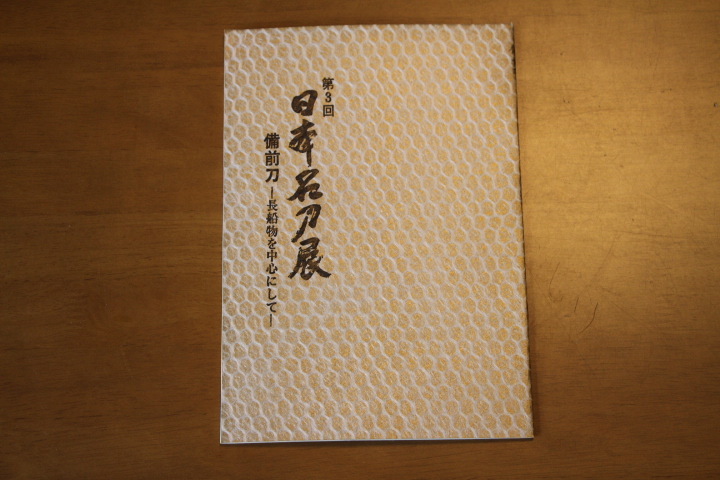 第3回
日本名刀展
備前刀―長船物を中心にして―